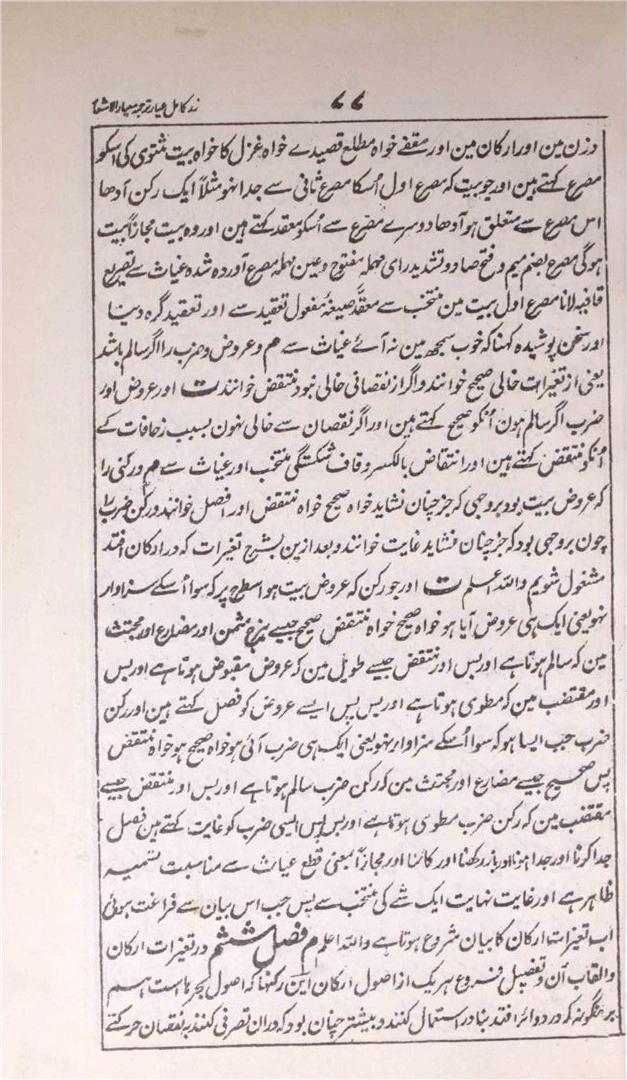 زر کامل عیار ترجمہ معیار الاشعار
۷۷
وزن مین اور ارکان مین اور مقفے خواہ مطلع قصیدے خواہ غزل کا خواہ بیت مثنوی کی اسکو
مصرع کہتے ہین اور جو بیت کہ مصرع اول اُسکا مصرع ثانی سے جدا نہو مثلاً ایک رکن آدھا
اس مصرع سے متعلق ہو آدھا دوسرے مصرع سے اُسکو معقد کہتے ہین اور وہ بیت مجازاً بیت
ہوگی مصرع بضم میم و فتح صاد و تشدید رای مہملہ مفتوح و عین مہملہ مصرع آوردہ شدہ غیاث سے تصریع
قافیہ لانا مصرع اول بیت مین منتخب سے معقد صیغۂ مفعول تعقید سے اور تعقید گرہ دینا
اور سخن پوشیدہ کہنا کہ خوب سمجھ مین نہ آئے غیاث سے هم و عروض و ضرب را اگر سالم باشد
یعنی از تغیرات خالی صحیح خوانند و اگر از نقصانی خالی نبود منتقض خوانند ت اور عروض اور
ضرب اگر سالم ہون اُنکو صحیح کہتے ہین اور اگر نقصان سے خالی نہون بسبب زحافات کے
اُنکو منتقض کہتے ہین اور انتقاض بالکسر و قاف شکستگی منتخب اور غیاث سے هم و رکنی را
کہ عروض بیت بود بروجہی کہ جز چنان نشاید خواہ صحیح خواہ منتقض اور افصل خوانند و رکن ضرب را
چون بروجہی بود کہ جز چنان نشاید غایت خوانند و بعد ازین بشرح تغیرات کہ در ارکان افتد
مشغول شویم واللہ اعلم ت اور جو رکن کہ عروض بیت ہو اسطرح پر کہ سوا اُسکے سزاوار
نہو یعنی ایک ہی عروض آیا ہو خواہ صحیح خواہ منتقض صحیح جیسے ہزج مثمن اور مضارع اور مجتث
مین کہ سالم ہوتا ہے اور بس اور منتقض جیسے طویل مین کہ عروض مقبوض ہوتا ہے اور بس
اور مقتضب مین کہ مطوی ہوتا ہے اور بس پس ایسے عروض کو فصل کہتے ہین اور رکن
ضرب جب ایسا ہو کہ سوا اُسکے سزاوار نہو یعنی ایک ہی ضرب آئی ہو خواہ صحیح ہو خواہ منتقض
پس صحیح جیسے مضارع اور مجتث مین کہ رکن ضرب سالم ہوتا ہے اور بس اور منتقض جیسے
مقتضب مین کہ رکن ضرب مطوی ہوتا ہے اور بس پس ایسی ضرب کو غایت کہتے ہین فصل
جدا کرنا اور جدا ہونا اور باز رکھنا اور کاٹنا اور مجازاً بمعنی قطع غیاث سے مناسبت تسمیہ
ظاہر ہے اور غایت نہایت ایک شے کی منتخب سے پس جب اس بیان سے فراغت ہوئی
اب تغیرات ارکان کا بیان شروع ہوتا ہے واللہ اعلم م فصل ششم در تغیرات ارکان
والقاب آن و تفصیل فروع ہریک از اصول ارکان این رکنہا کہ اصول بحرہاست ہم
برینگونہ کہ در دوائر افتد بنادر استعمال کنند و بیشتر چنان بود کہ دران تصرفی کنند بہ نقصان حرکتے